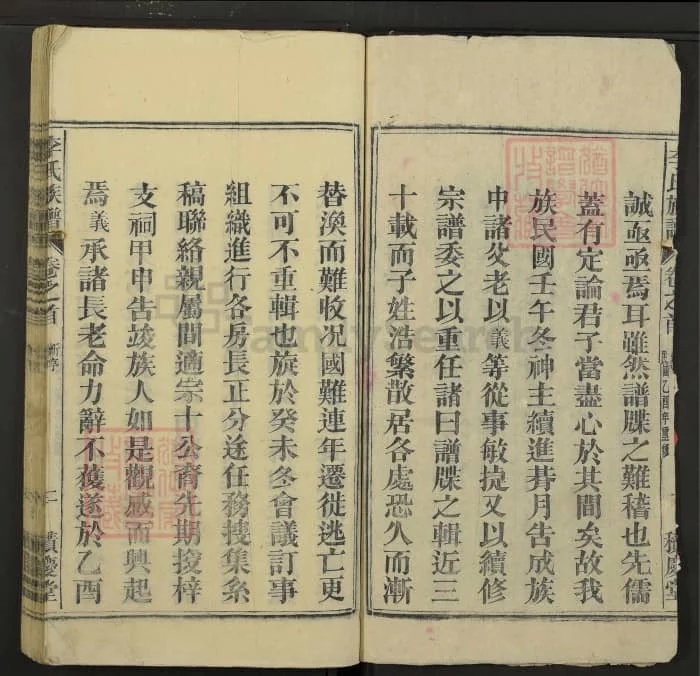 誠亟亟焉耳雖然譜牒之難稽也先儒
蓋有定論君子當盡心於其間矣故我
族民國壬午冬神主續進朞月告成族
中諸父老以義等從事敏捷又以續修
宗譜委之以重任諸曰譜牒之輯近三
十載而子姓浩繁散居各處恐久而漸
李氏族譜
卷之首
新序
二
積慶堂
替渙而難收况國難連年遷徙逃亡更
不可不重輯也族於癸未冬會議訂事
組織進行各房長正分途任務搜集系
稿聯絡親屬間適宗十公裔先期按梓
支祠甲申告竣族人如是觀感而興起
焉義承諸長老命力辭不獲遂於乙酉
FamilySearch